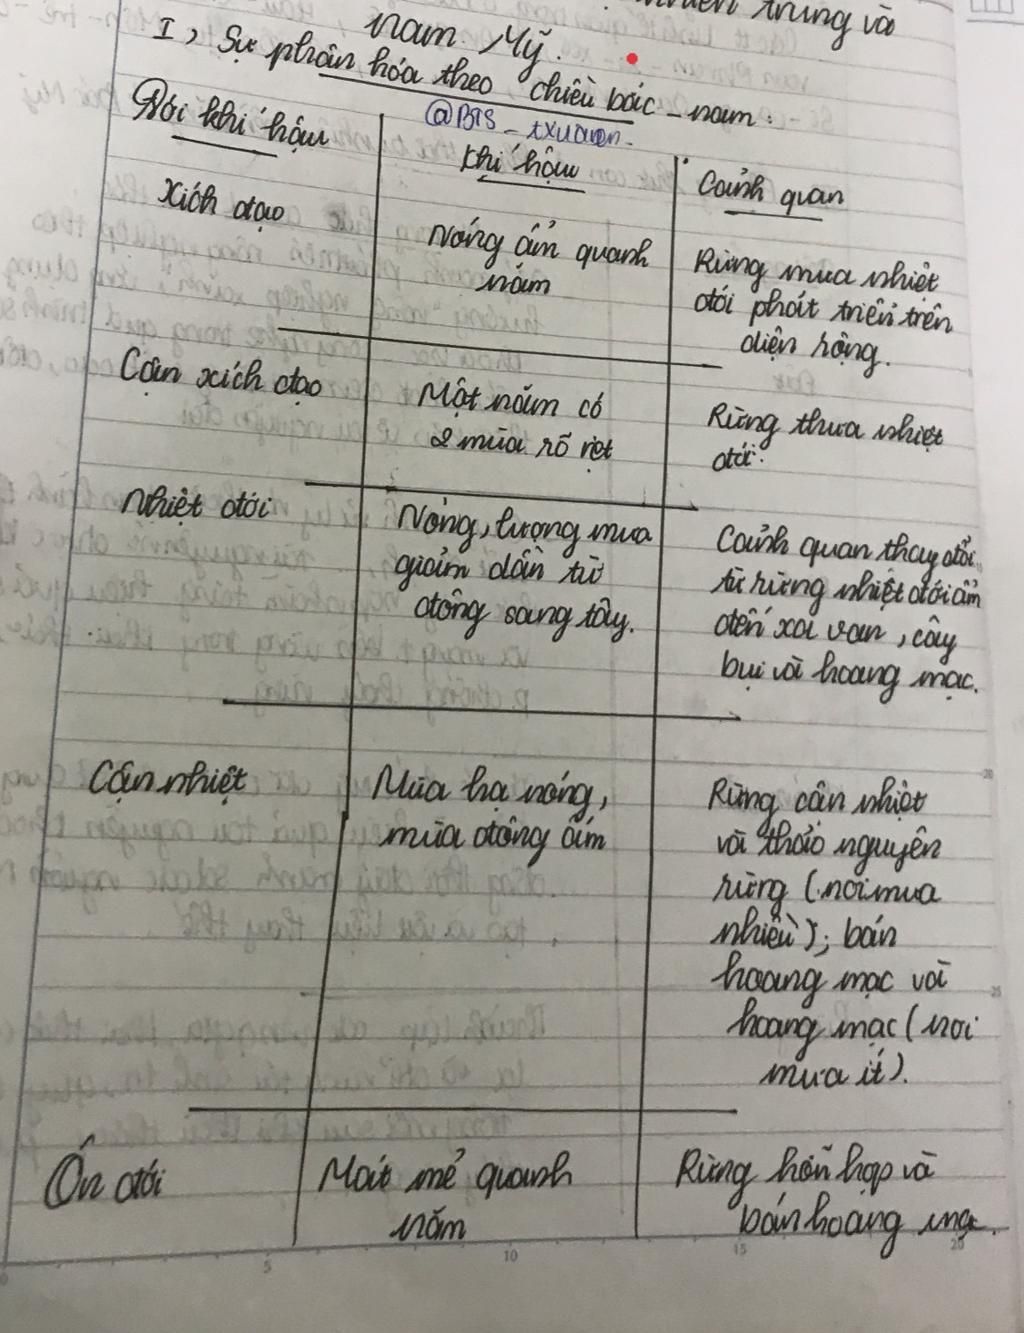 trung và
Nam Mỹ.
I, Sự phân hóa theo chiều bắc - nam.
@BTS_txuaen.
Đới khí hậu
Khí hậu
Cảnh quan
Xích đạo
Nóng ẩm quanh
năm
Rừng mưa nhiệt
đới phát triển trên
diện rộng.
Cận xích đạo
Một năm có
2 mùa rõ rệt
Rừng thưa nhiệt
đới.
Nhiệt đới
Nóng, lượng mưa
giảm dần từ
đông sang tây.
Cảnh quan thay đổi
từ rừng nhiệt đới ẩm
đến xa van, cây
bụi và hoang mạc.
Cận nhiệt
Mùa hạ nóng,
mùa đông ấm
Rừng cận nhiệt
và thảo nguyên
rừng (nơi mưa
nhiều); bán
hoang mạc và
hoang mạc (nơi
mưa ít).
Ôn đới
Mát mẻ quanh
năm
Rừng hỗn hợp và
bán hoang mạc.
5
10
15
20